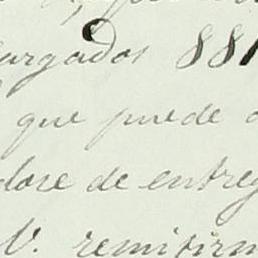 argados 881
que puede
dose de entreg
V. remitirm